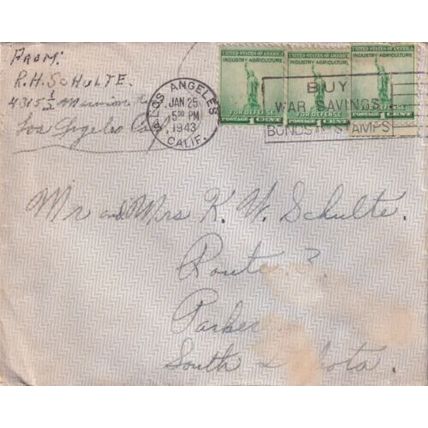 From:
R.H. SCHULTE.
4315 1/2
Los Angeles Ca
LOS ANGELES
JAN 25
5 30 PM
1943
CALIF.
UNITED STATES OF AMERICA
INDUSTRY AGRICULTURE
FOR DEFENSE
POSTAGE 1 CENT
UNITED STATES OF AMERICA
INDUSTRY AGRICULTURE
FOR DEFENSE
POSTAGE 1 CENT
UNITED STATES OF AMERICA
INDUSTRY AGRICULTURE
POSTAGE 1 CENT
BUY
WAR SAVINGS
BONDS STAMPS
Mr and Mrs K. W. Schulte.
Route 3.
Parker
South